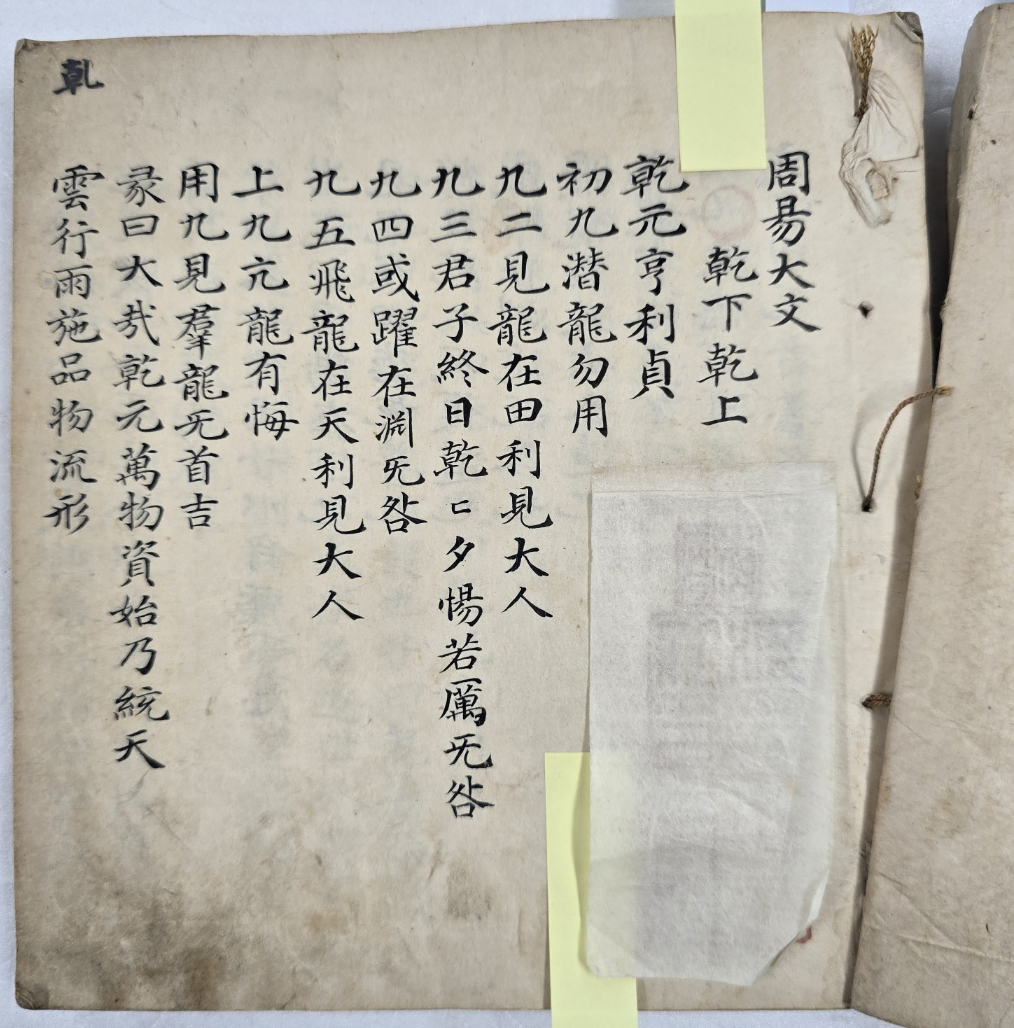 周易大文
乾下乾上
乾元亨利貞
初九潛龍勿用
九二見龍在田利見大人
九三君子終日乾〻夕惕若厲旡咎
九四或躍在淵旡咎
九五飛龍在天利見大人
上九亢龍有悔
用九見羣龍旡首吉
彖曰大哉乾元萬物資始乃統天
雲行雨施品物流形
乹